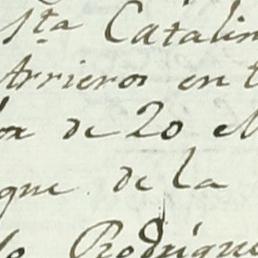 Sta Catalin
Arrieros en t
de 20 
que de la
Rodrigue